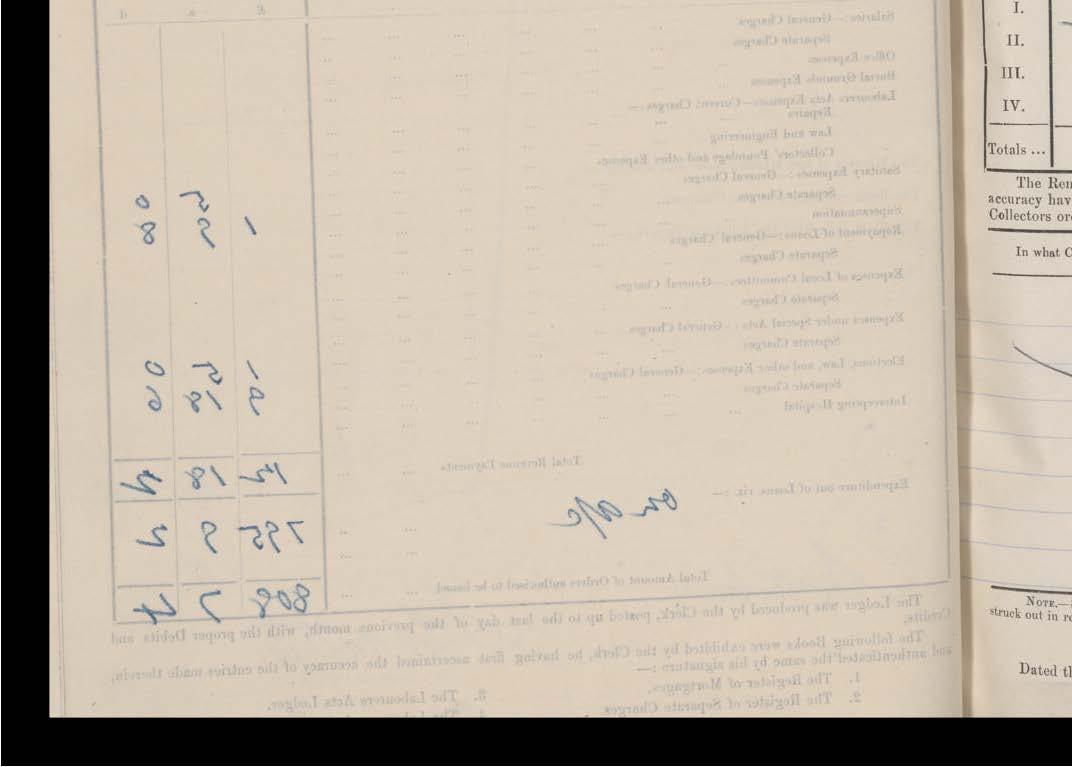 £ s d
Salaries :—General Charges
Separate Charges
Office Expenses
Burial Grounds Expenses
Labourers Acts Expenses—Current Charges :—
Repairs
Law and Engineering
Collectors' Poundage and other Expenses
Sanitary Expenses :—General Charges
Separate Charges
Superannuation
Repayment of Loans :—General Charges
Separate Charges
Expenses of Local Committees :—General Charges
Separate Charges
Expenses under Special Acts :—General Charges
Separate Charges
Elections, Law, and other Expenses :—General Charges
Separate Charges
Intercepting Hospital
Total Revenue Payments
Expenditure out of Loans, viz. :—
on a/c
795 9
Total Amount of Orders authorised to be issued
808 7 4
The Ledger was produced by the Clerk, posted up to the last day of the previous month, with the proper Debits and
Credits.
The following Books were exhibited by the Clerk, he having first ascertained the accuracy of the entries made therein,
and authenticated the same by his signature :—
1. The Register of Mortgages.
2. The Register of Separate Charges
3. The Labourers Acts Ledger.
I.
II.
III.
IV.
Totals ...
The Ren
accuracy hav
Collectors or
In what C
NOTE.—
struck out in re
Dated th